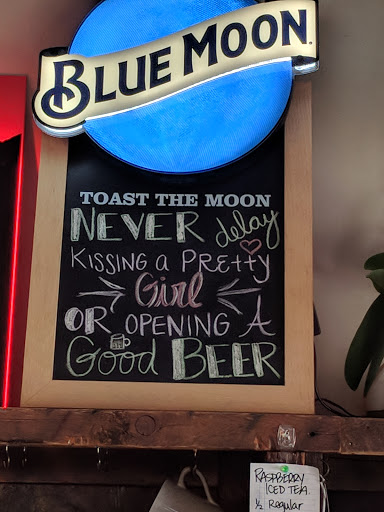 BLUE MOON.
TOAST THE MOON
NEVER delay
KISSING A PRETTY
Girl
OR OPENING A
Good BEER
RASPBERRY
ICED TEA.
½ Regular